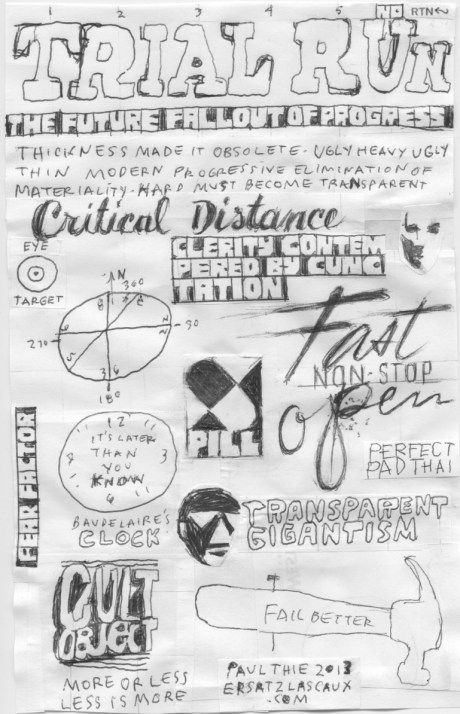 1 2 3 4 5 NO RTN
TRIAL RUN
THE FUTURE FALLOUT OF PROGRESS
THICKNESS MADE IT OBSOLETE - UGLY HEAVY UGLY
THIN MODERN PROGRESSIVE ELIMINATION OF
MATERIALITY - HARD MUST BECOME TRANSPARENT
Critical Distance
CLERITY CONTEM
PERED BY CUNC
TATION
EYE
TARGET
N
360
90
270
180
Fast
NON-STOP
open
PERFECT
PAD THAI
PILL
FEAR FACTOR
12
3
6
9
IT'S LATER
THAN
YOU
KNOW
BAUDELAIRE'S
CLOCK
TRANSPARENT
GIGANTISM
CULT
OBJECT
MORE OR LESS
LESS IS MORE
FAIL BETTER
PAUL THIE 2013
ERSATZLASCAUX
.COM